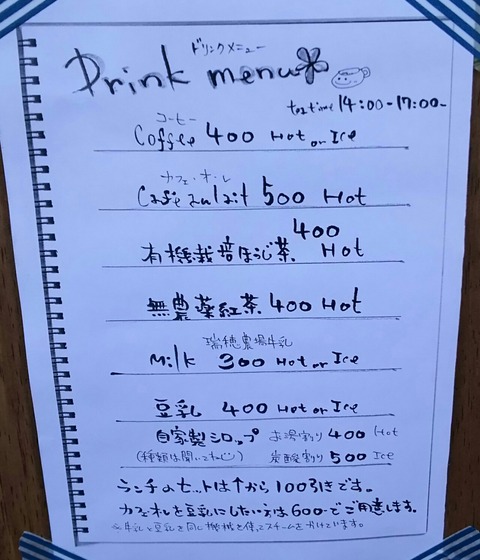 ドリンクメニュー
Drink menu
tea time 14:00-17:00-
コーヒー
Coffee 400 Hot or Ice
カフェ・オ・レ
Cafe au lait 500 Hot
有機栽培ほうじ茶 400 Hot
無農薬紅茶 400 Hot
瑞穂農場牛乳
Milk 300 Hot or Ice
豆乳 400 Hot or Ice
自家製シロップ お湯割り 400 Hot
(種類は聞いてね) 炭酸割り 500 Ice
ランチのセットは↑から100引きです。
カフェオレを豆乳にしたい方は600-でご用意します。
※牛乳と豆乳を同じ機械を使ってスチームをかけています。